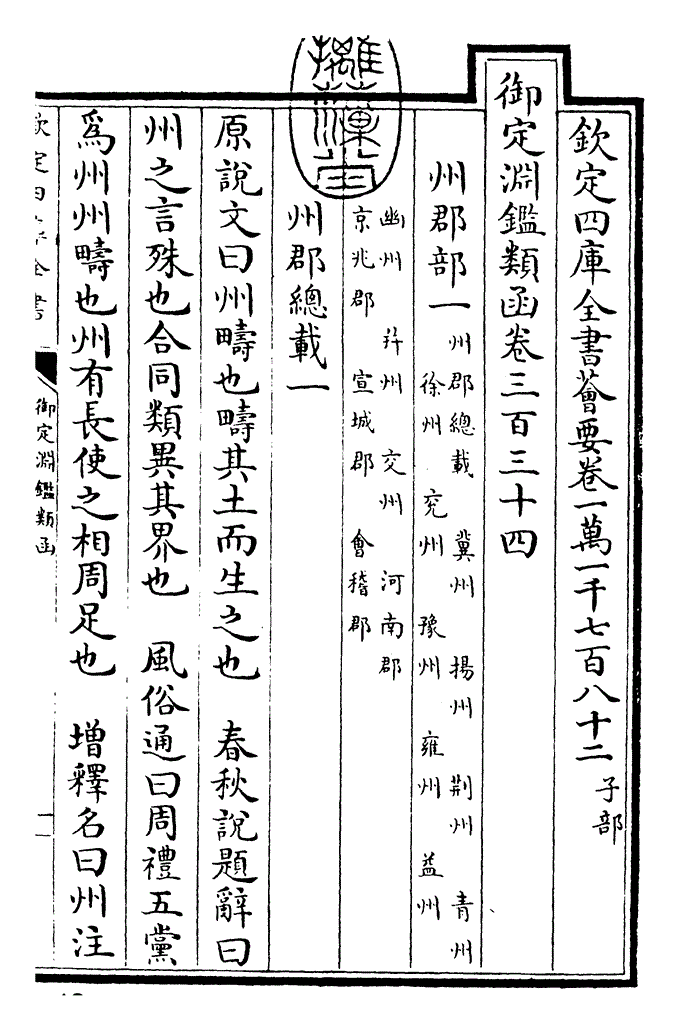 欽定四庫全書薈要卷一萬一千七百八十二 子部
御定淵鑑類函卷三百三十四
州郡部一 州郡總載 冀州 揚州 荆州 青州
徐州 兖州 豫州 雍州 益州
幽州 并州 交州 河南郡
京兆郡 宣城郡 會稽郡
州郡總載一
原說文曰州疇也疇其土而生之也 春秋說題辭曰
州之言殊也合同類異其界也 風俗通曰周禮五黨
爲州州疇也州有長使之相周足也 增釋名曰州注
欽定四庫全書
御定淵鑑類函
一